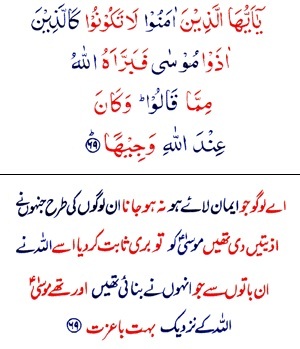 يٰۤاَيُّهَا الَّذِيْنَ اٰمَنُوْا لَا تَكُوْنُوْا كَالَّذِيْنَ
اٰذَوْا مُوْسٰى فَبَرَّاَهُ اللّٰهُ
مِمَّا قَالُوْا ؕ وَكَانَ
عِنْدَ اللّٰهِ وَجِيْهًا ؕ ﴿۶۹﴾
اے لوگو جو ایمان لائے ہو نہ ہو جانا ان لوگوں کی طرح جنہوں نے
اذیتیں دی تھیں موسیٰؑ کو تو بری ثابت کردیا اسے اللہ نے
ان باتوں سے جو انہوں نے بنائی تھیں اور تھے موسیٰؑ
اللہ کے نزدیک بہت باعزت ﴿۶۹﴾